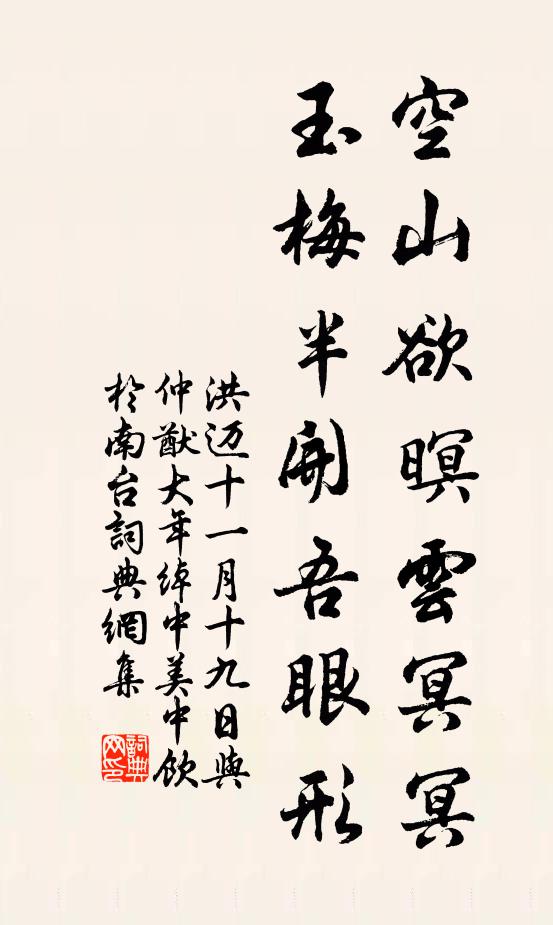 空山欲暝雲冥冥
玉梅半開吾眼形
洪迈十一月十九日與
仲猷大年绰中美中飲
於南台詞典網集
詞典
网印